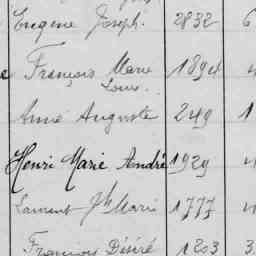 Eugène Joseph. 2832 6
François Marie 1894
Louis
Anne Auguste 249 1
Henri Marie André 1929
Laurent Jh Marie 1777
François Désiré 1203 3